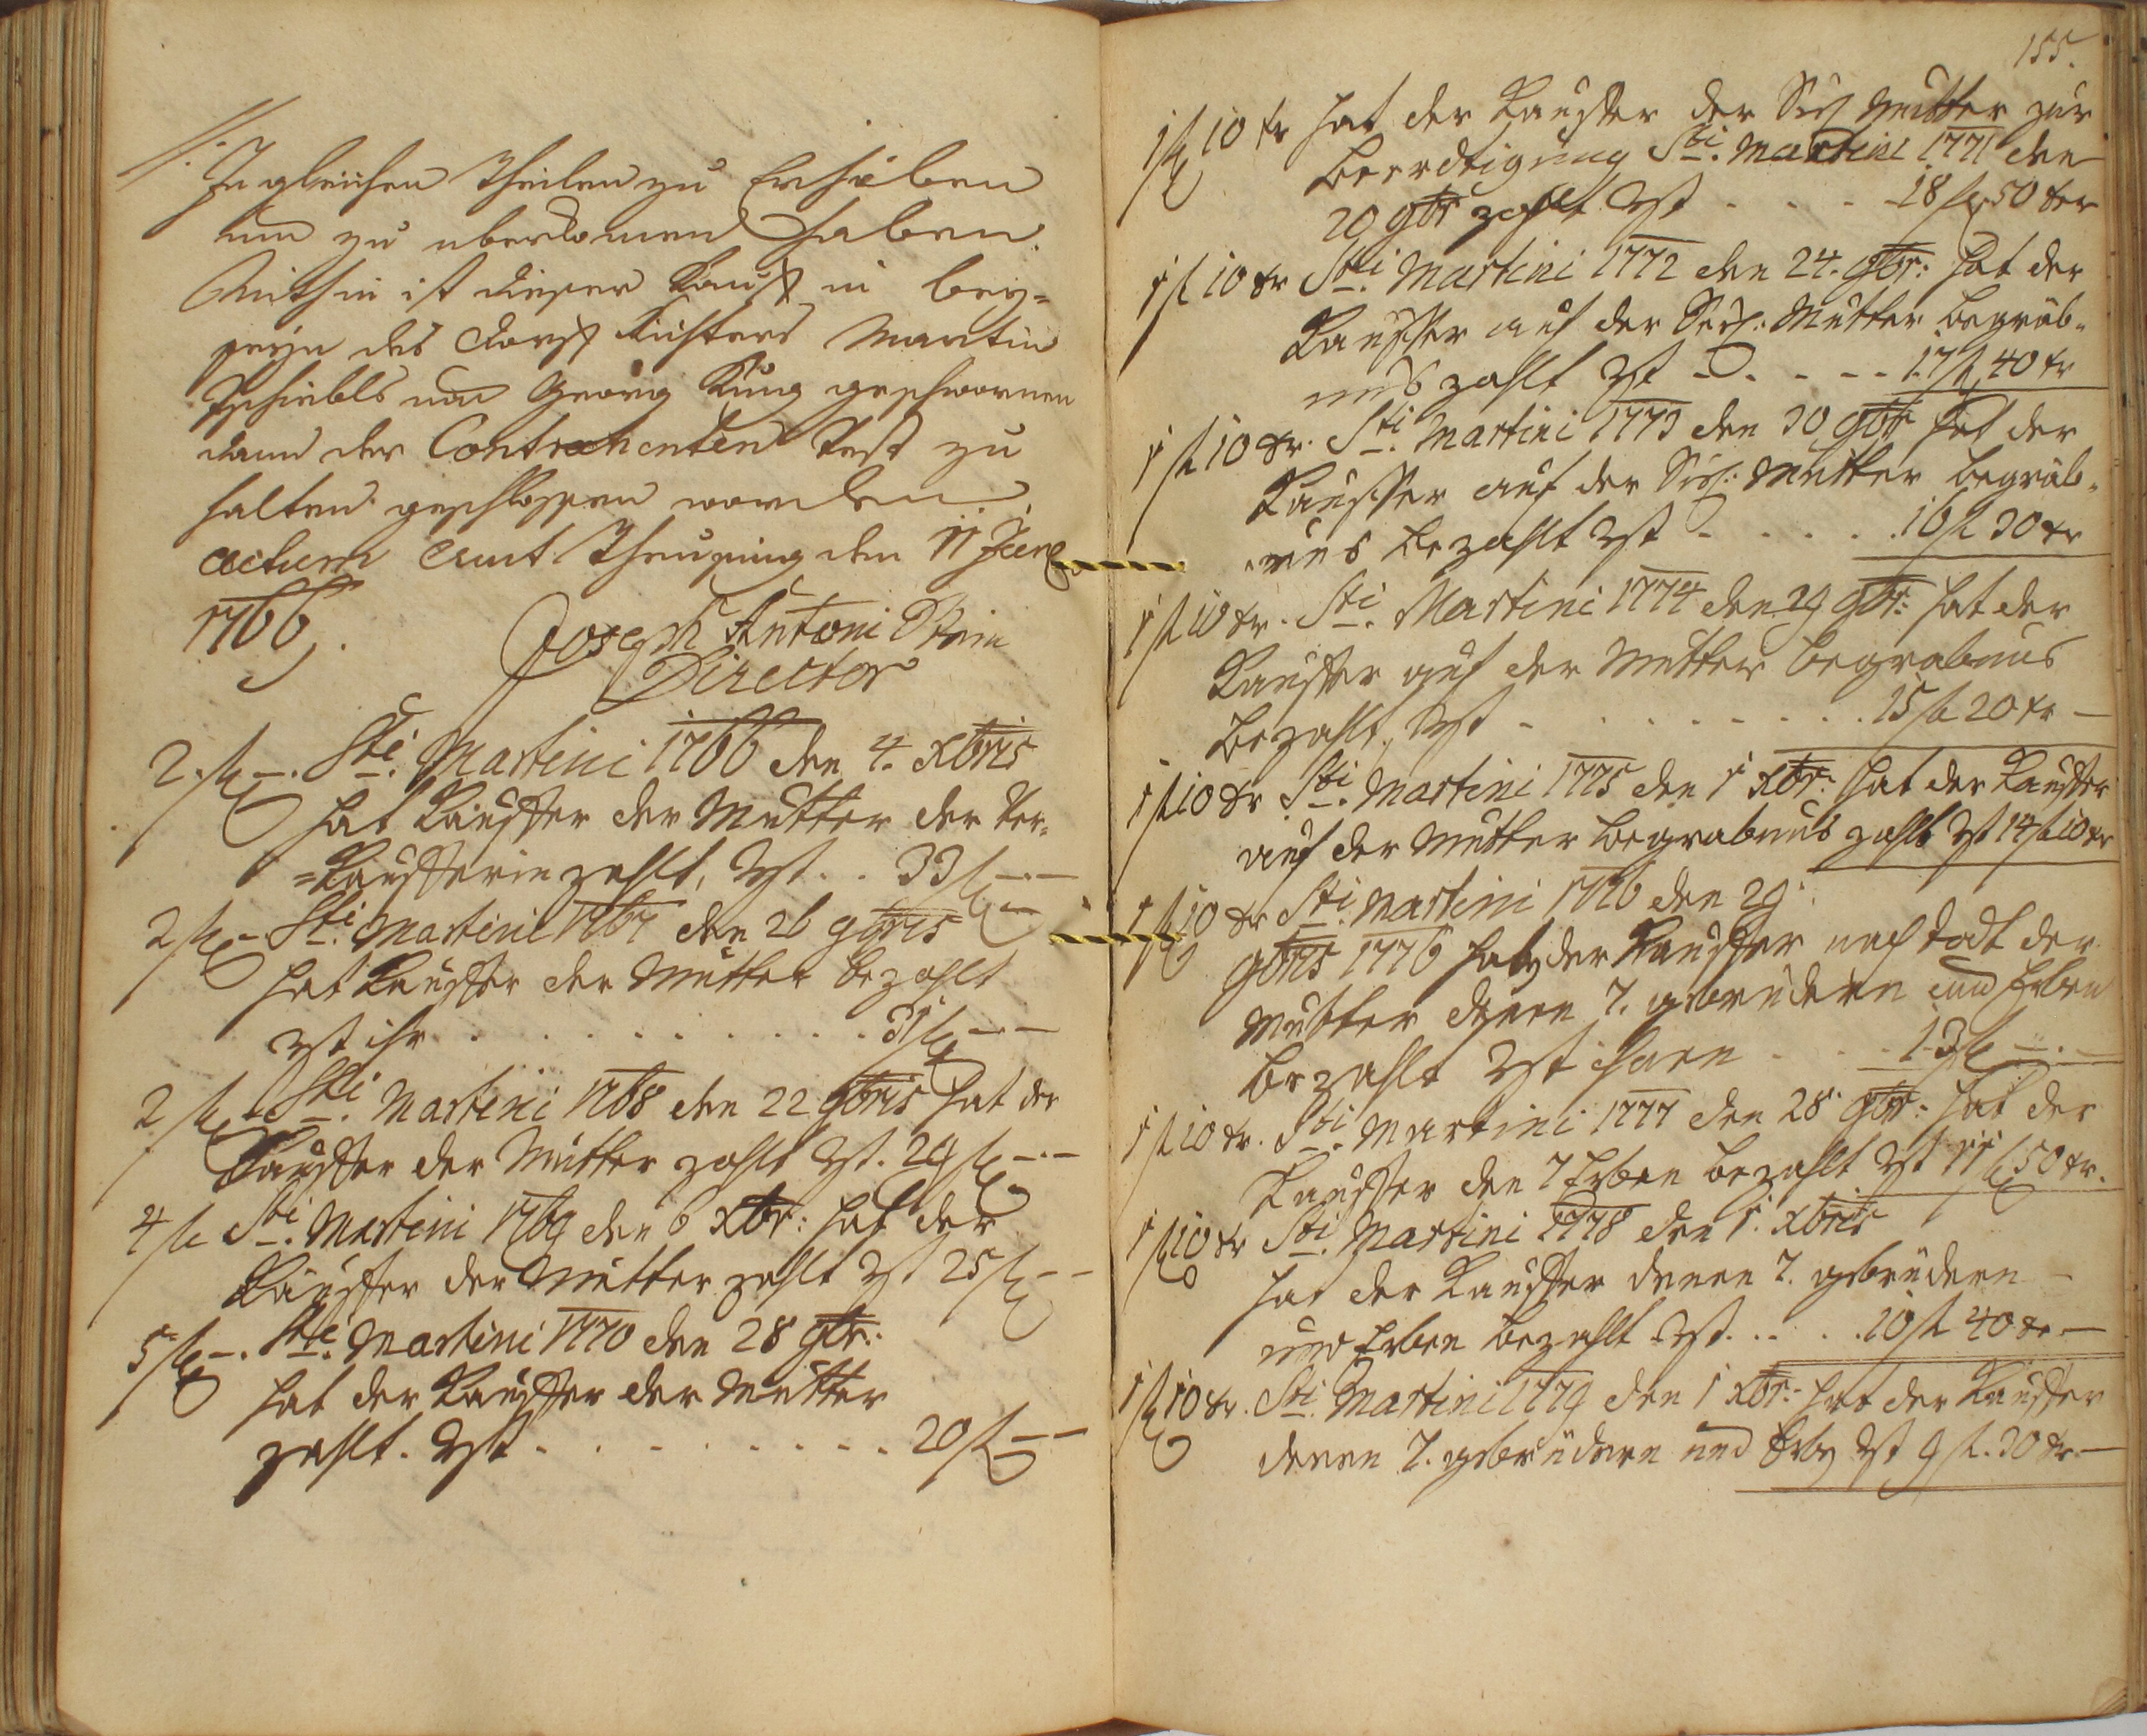 //: In gleichen Theilen zu Erheben
und zu uberkomen Haben.
Mithin ist dieser Kauff in bey=
seyn des Dorff Richters Martin
und Georg Kung geschwornen
dann der Contrahenten Vest zu
halten geschlossen worden
Actum Amt den 11 Juny
1766.
Joseph Antoni
Director
2 fl —. Sti. Martini 1766 den 4. Xbris
hat Kauffer der Mutter der Ver=
=kaufferin zahlt, Rst. . 33 fl —.—
2 fl — Sti. Martini 1767 den 26 9bris
hat Kauffer der Mutter bezahlt
Rst ihr . . . . . . . . . 31 fl —.—
2 fl — Sti. Martini 1768 den 22 9bris hat der
Kauffer der Mutter zahlt Rst. 29 fl —.—
4 fl Sti. Martini 1769 den 6 Xbr: hat der
Kauffer der Mutter zahlt Rst 25 fl — —
5 fl —. Sti. Martini 1770 den 28 9br:
hat der Kauffer der Mutter
zahlt. Rst . . . . . . . . . 20 fl — —
155.
1 fl 10 kr hat der Kauffer der Mutter zur
beerdigung Sti. Martini 1771 den
20 9br zahlt Rst . . . . 18 fl 50 kr
1 fl 10 kr Sti. Martini 1772 den 24. 9br: hat der
Kauffer auf der Mutter begrab=
nus zahlt Rst - . - - - 17 fl 40 kr
1 fl 10 kr. Sti. Martini 1773 den 30 9br hat der
Kauffer auf der Mutter begrab=
nus bezahlt Rst . . . . . 16 fl 30 kr
1 fl 10 kr. Sti. Martini 1774 den 29 9br: hat der
Kauffer auf der Mutter begrabnus
bezahlt, Rst . . . . . . . . 15 fl 20 kr —
1 fl 10 kr Sti. Martini 1775 den 1 Xbr: hat der Kauffer
auf der Mutter begrabnus zahlt Rst 14 fl 10 kr
1 fl 10 kr Sti. Martini 1776 den 29.
9bris 1776 hat der Kauffer nach todt der
Mutter denen 7. gebrüdern und Erben
bezahlt Rst ihnen . . . 13 fl —.—
1 fl 10 kr. Sti. Martini 1777 den 28 9br: hat der
Kauffer den 7 Erben bezahlt Rst 11 fl 50 kr.
1 fl 10 kr Sti. Martini 1778 den 1. Xbris
hat der Kauffer denen 7. gebrüdern
und Erben bezahlt Rst. . . . . 10 fl 40 kr —
1 fl 10 kr. Sti. Martini 1779 den 1 Xbr: hat der Kauffer
denen 7. gebrüdern und Erben Rst 9 fl. 30 kr. —